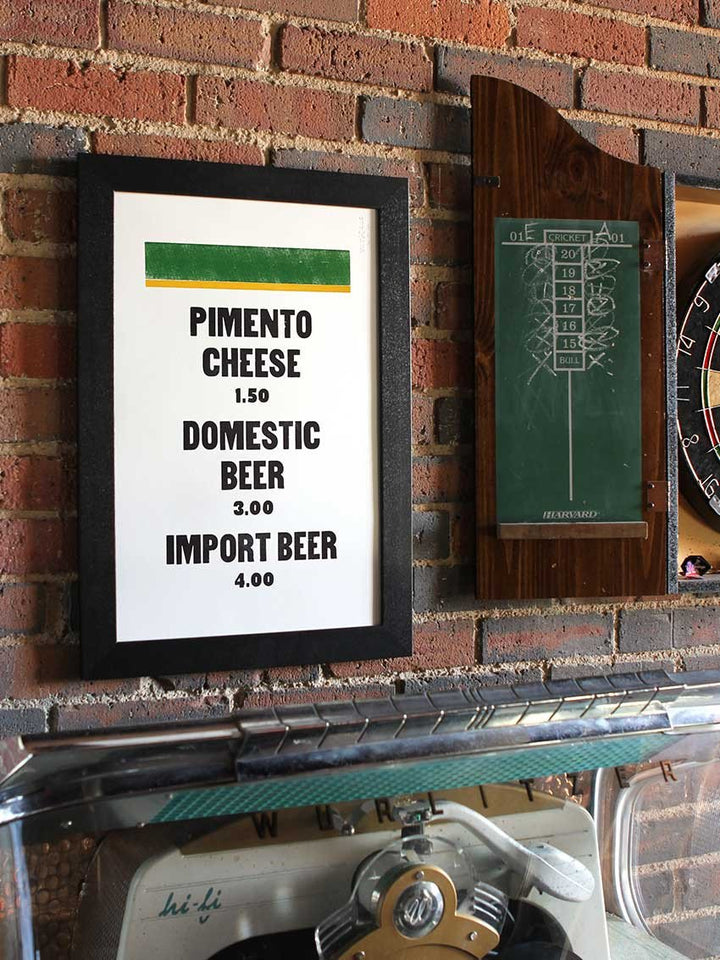 PIMENTO
CHEESE
1.50
DOMESTIC
BEER
3.00
IMPORT BEER
4.00
E A
01 CRICKET 01
20
19
18
17
16
15
BULL
HARVARD
14
9
11
8
16
WURLITZER
hi-fi